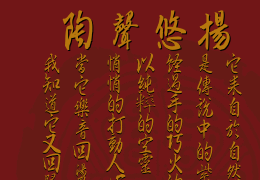 陶聲悠揚
它來自於自然
是傳說中的樂
經過手的巧火
以純粹的空靈
悄悄的打動人
當它樂音回
我知道它又回